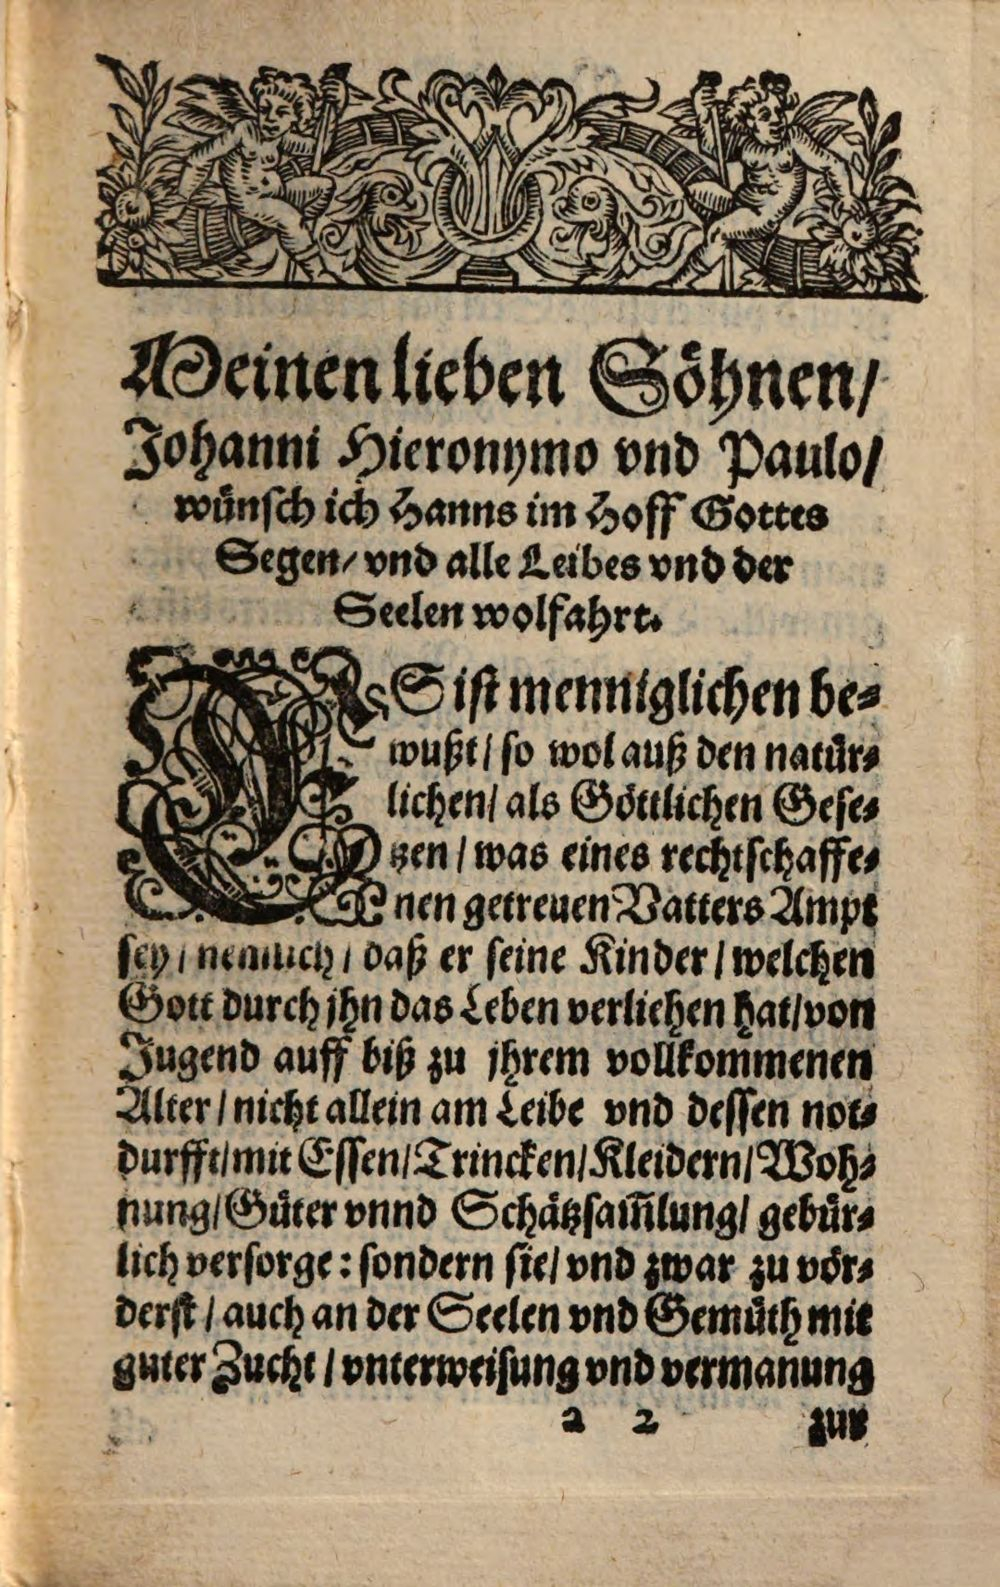 Meinen lieben Söhnen/
Johanni Hieronymo vnd Paulo/
wünsch ich Hanns im Hoff Gottes
Segen/ vnd alle Leibes vnd der
Seelen wolfahrt.
ES ist menniglichen be-
wußt/ so wol auß den natür-
lichen/ als Göttlichen Gese-
tzen/ was eines rechtschaffe-
nen getreuen Vatters Ampt
sey/ nemlich/ daß er seine Kinder/ welchen
Gott durch jhn das Leben verliehen hat/ von
Jugend auff biß zu jhrem vollkommenen
Alter/ nicht allein am Leibe vnd dessen not-
durfft/ mit Essen/ Trincken/ Kleidern/ Woh-
nung/ Güter vnnd Schätzsam̃lung/ gebür-
lich versorge: sondern sie/ vnd zwar zu vör-
derst/ auch an der Seelen vnd Gemüth mit
guter Zucht/ vnterweisung vnd vermanung
a 2 zur